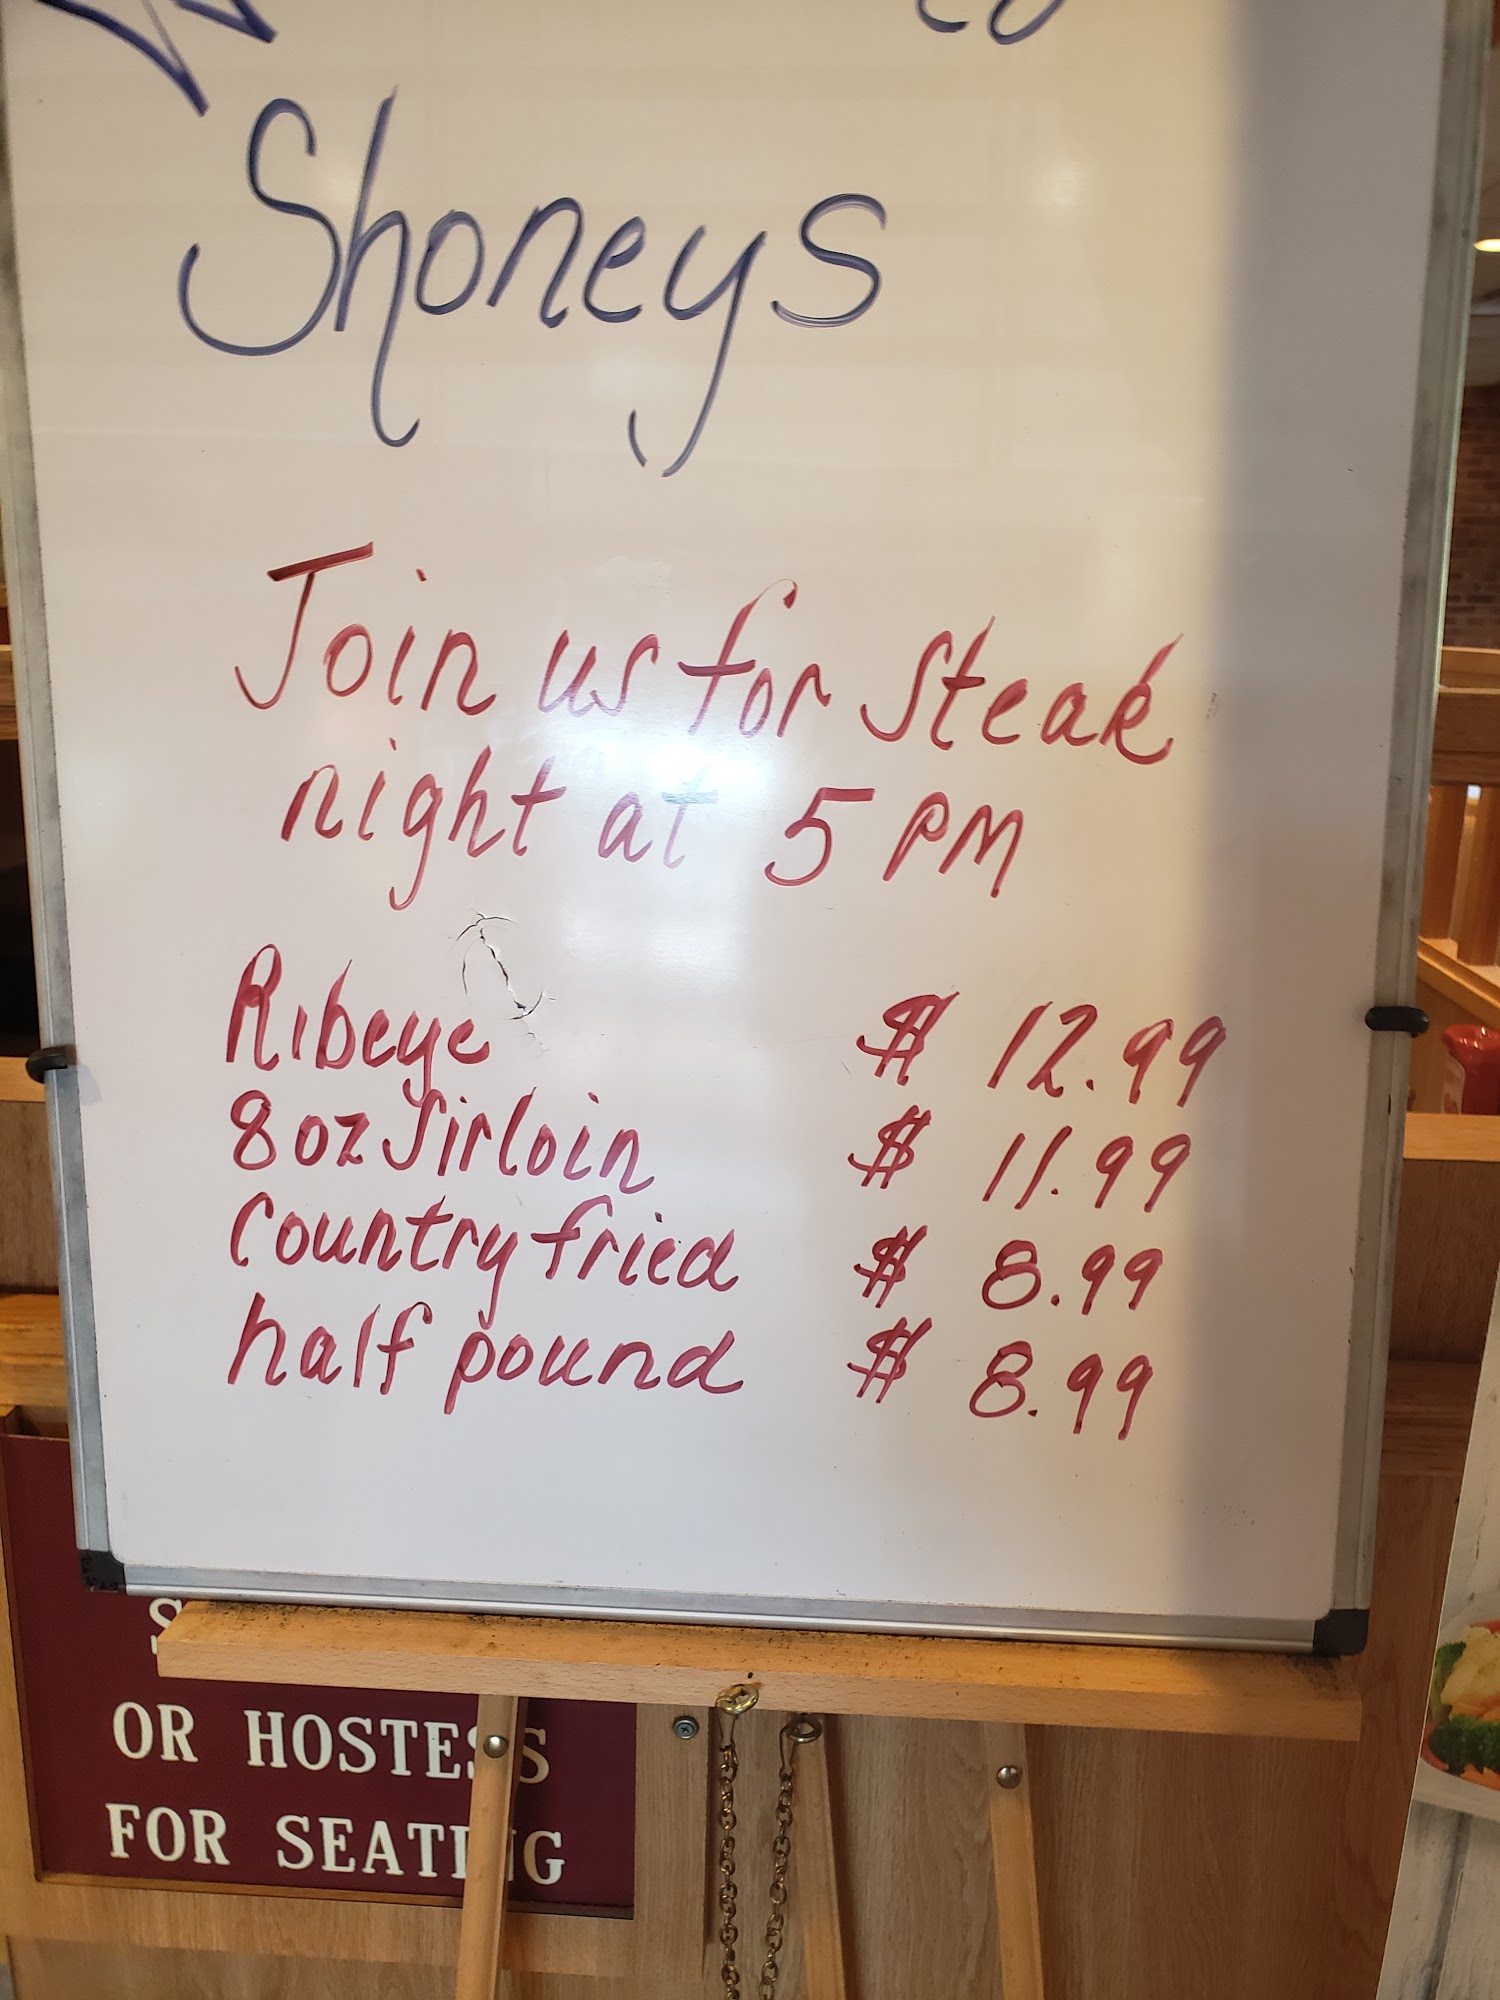 Shoneys
Join us for Steak
night at 5 PM
Ribeye $ 12.99
8oz Sirloin $ 11.99
Country fried $ 8.99
half pound $ 8.99
OR HOSTESS
FOR SEATING